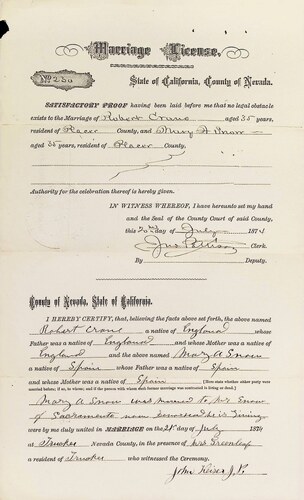 Marriage License.
No. 230
State of California, County of Nevada.
SATISFACTORY PROOF having been laid before me that no legal obstacle
exists to the Marriage of Robert Crane aged 35 years,
resident of Placer County, and Mary A Snow
aged 35 years, resident of Placer County.
Authority for the celebration thereof is hereby given.
IN WITNESS WHEREOF, I have hereunto set my hand
and the Seal of the County Court of said County,
this day of July 1874
Clerk
By Deputy.
County of Nevada, State of California.
I HEREBY CERTIFY, that, believing the facts above set forth, the above named
Robert Crane a native of England whose
Father was a native of England and whose Mother was a native of
England and the above named Mary A Snow
a native of Spain whose Father was a native of Spain
and whose Mother was a native of Spain
Mary A Snow was married to Mr Snow
of Sacramento
were by me duly united in MARRIAGE on the 2d July 1874
at Truckee Nevada County, in the presence of Mrs Greenleaf
a resident of Truckee who witnessed the Ceremony.
John Keiser J.P.